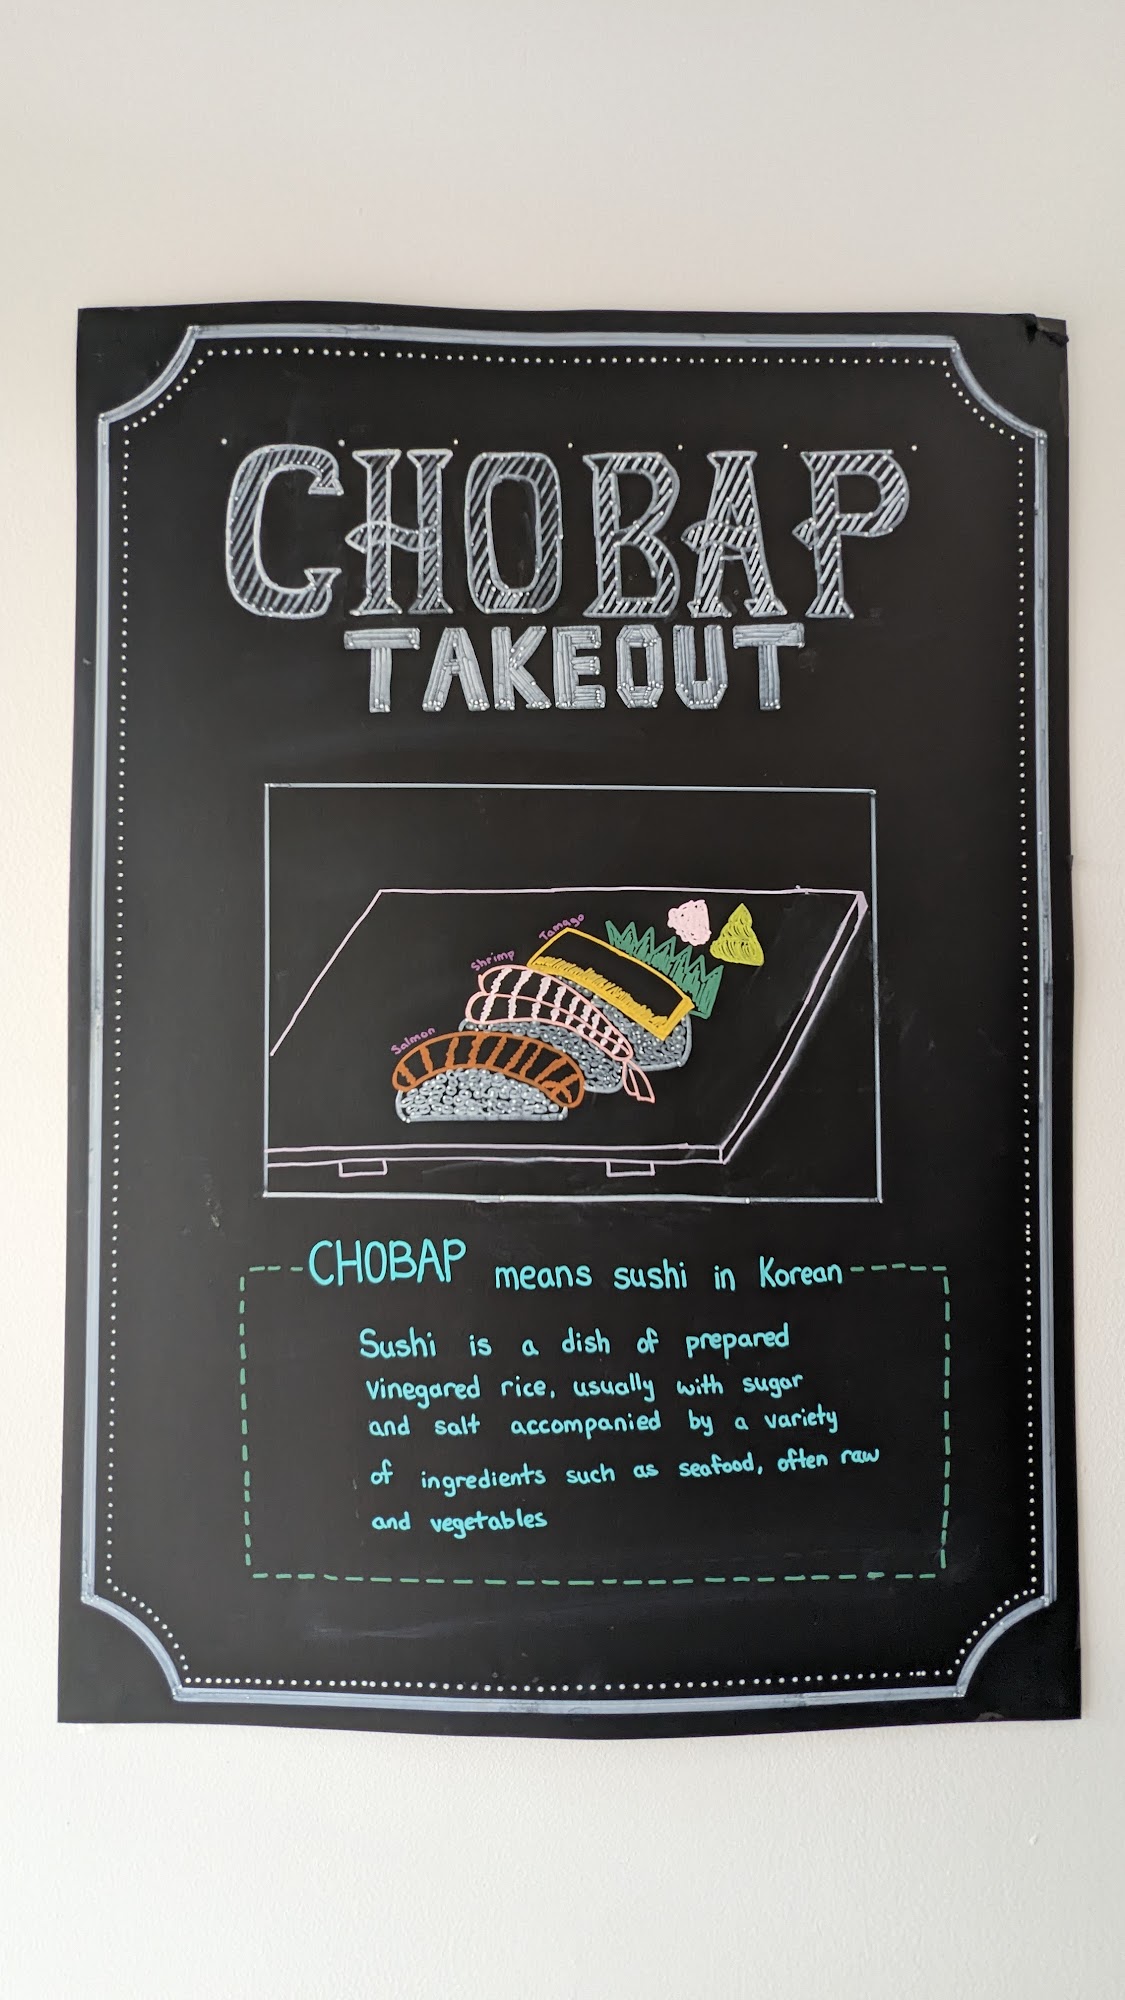 CHOBAP
TAKEOUT
Tamago
Shrimp
Salmon
CHOBAP means sushi in Korean
Sushi is a dish of prepared
vinegared rice, usually with sugar
and salt accompanied by a variety
of ingredients such as seafood, often raw
and vegetables